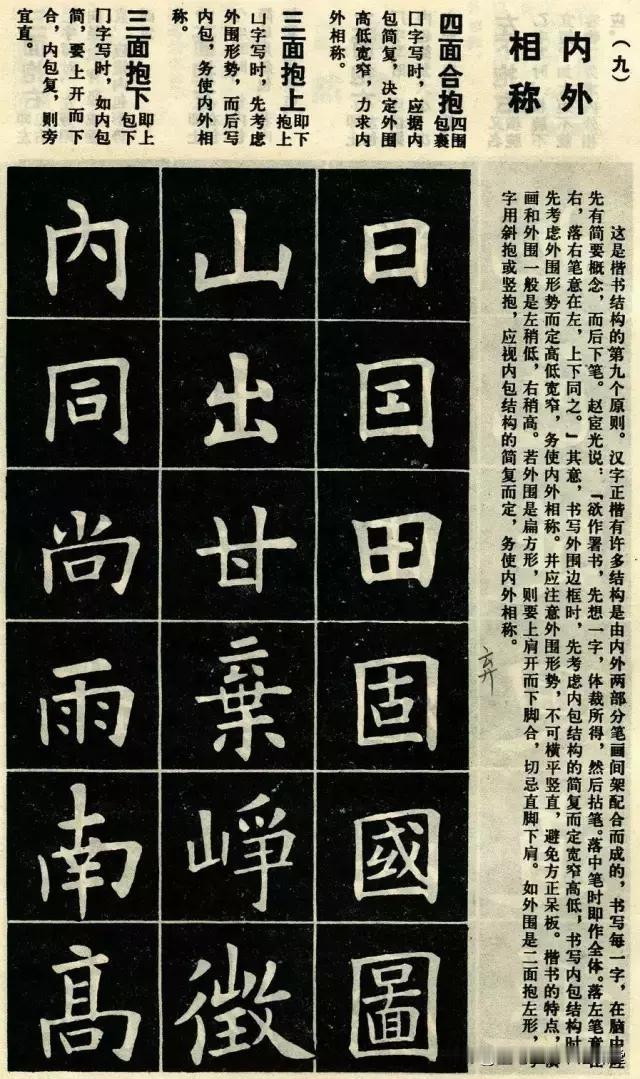 （九）
内外
相称
四面合抱 四围
包裹
囗字写时，应据内
包简复，决定外围
高低宽窄，力求内
外相称。
三面抱上 即下
抱上
凵字写时，先考虑
外围形势，而后写
内包，务使内外相
称。
三面抱下 即上
包下
冂字写时，如内包
简，要上开而下
合，内包复，则旁
宜直。
这是楷书结构的第九个原则。汉字正楷有许多结构是由内外两部分笔画间架配合而成的，书写每一字，在脑中应
先有简要概念，而后下笔。赵宧光说，『欲作署书，先想一字，体裁所得，然后拈笔。落中笔时即作全体。落左笔意在
右，落右笔意在左，上下同之。』其意，书写外围边框时，先考虑内包结构的简复而定宽窄高低，书写内包结构时，
先考虑外围形势而定高低宽窄，务使内外相称。并应注意外围形势，不可横平竖直，避免方正呆板。楷书的特点，横
画和外围一般是左稍低，右稍高。若外围是扁方形，则要上肩开而下脚合，切忌直脚下肩。如外围是二面抱左形，
字用斜抱或竖抱，应视内包结构的简复而定，务使内外相称。
弃
日国田固國圖
山出甘棄崢徵
内同尚雨南高